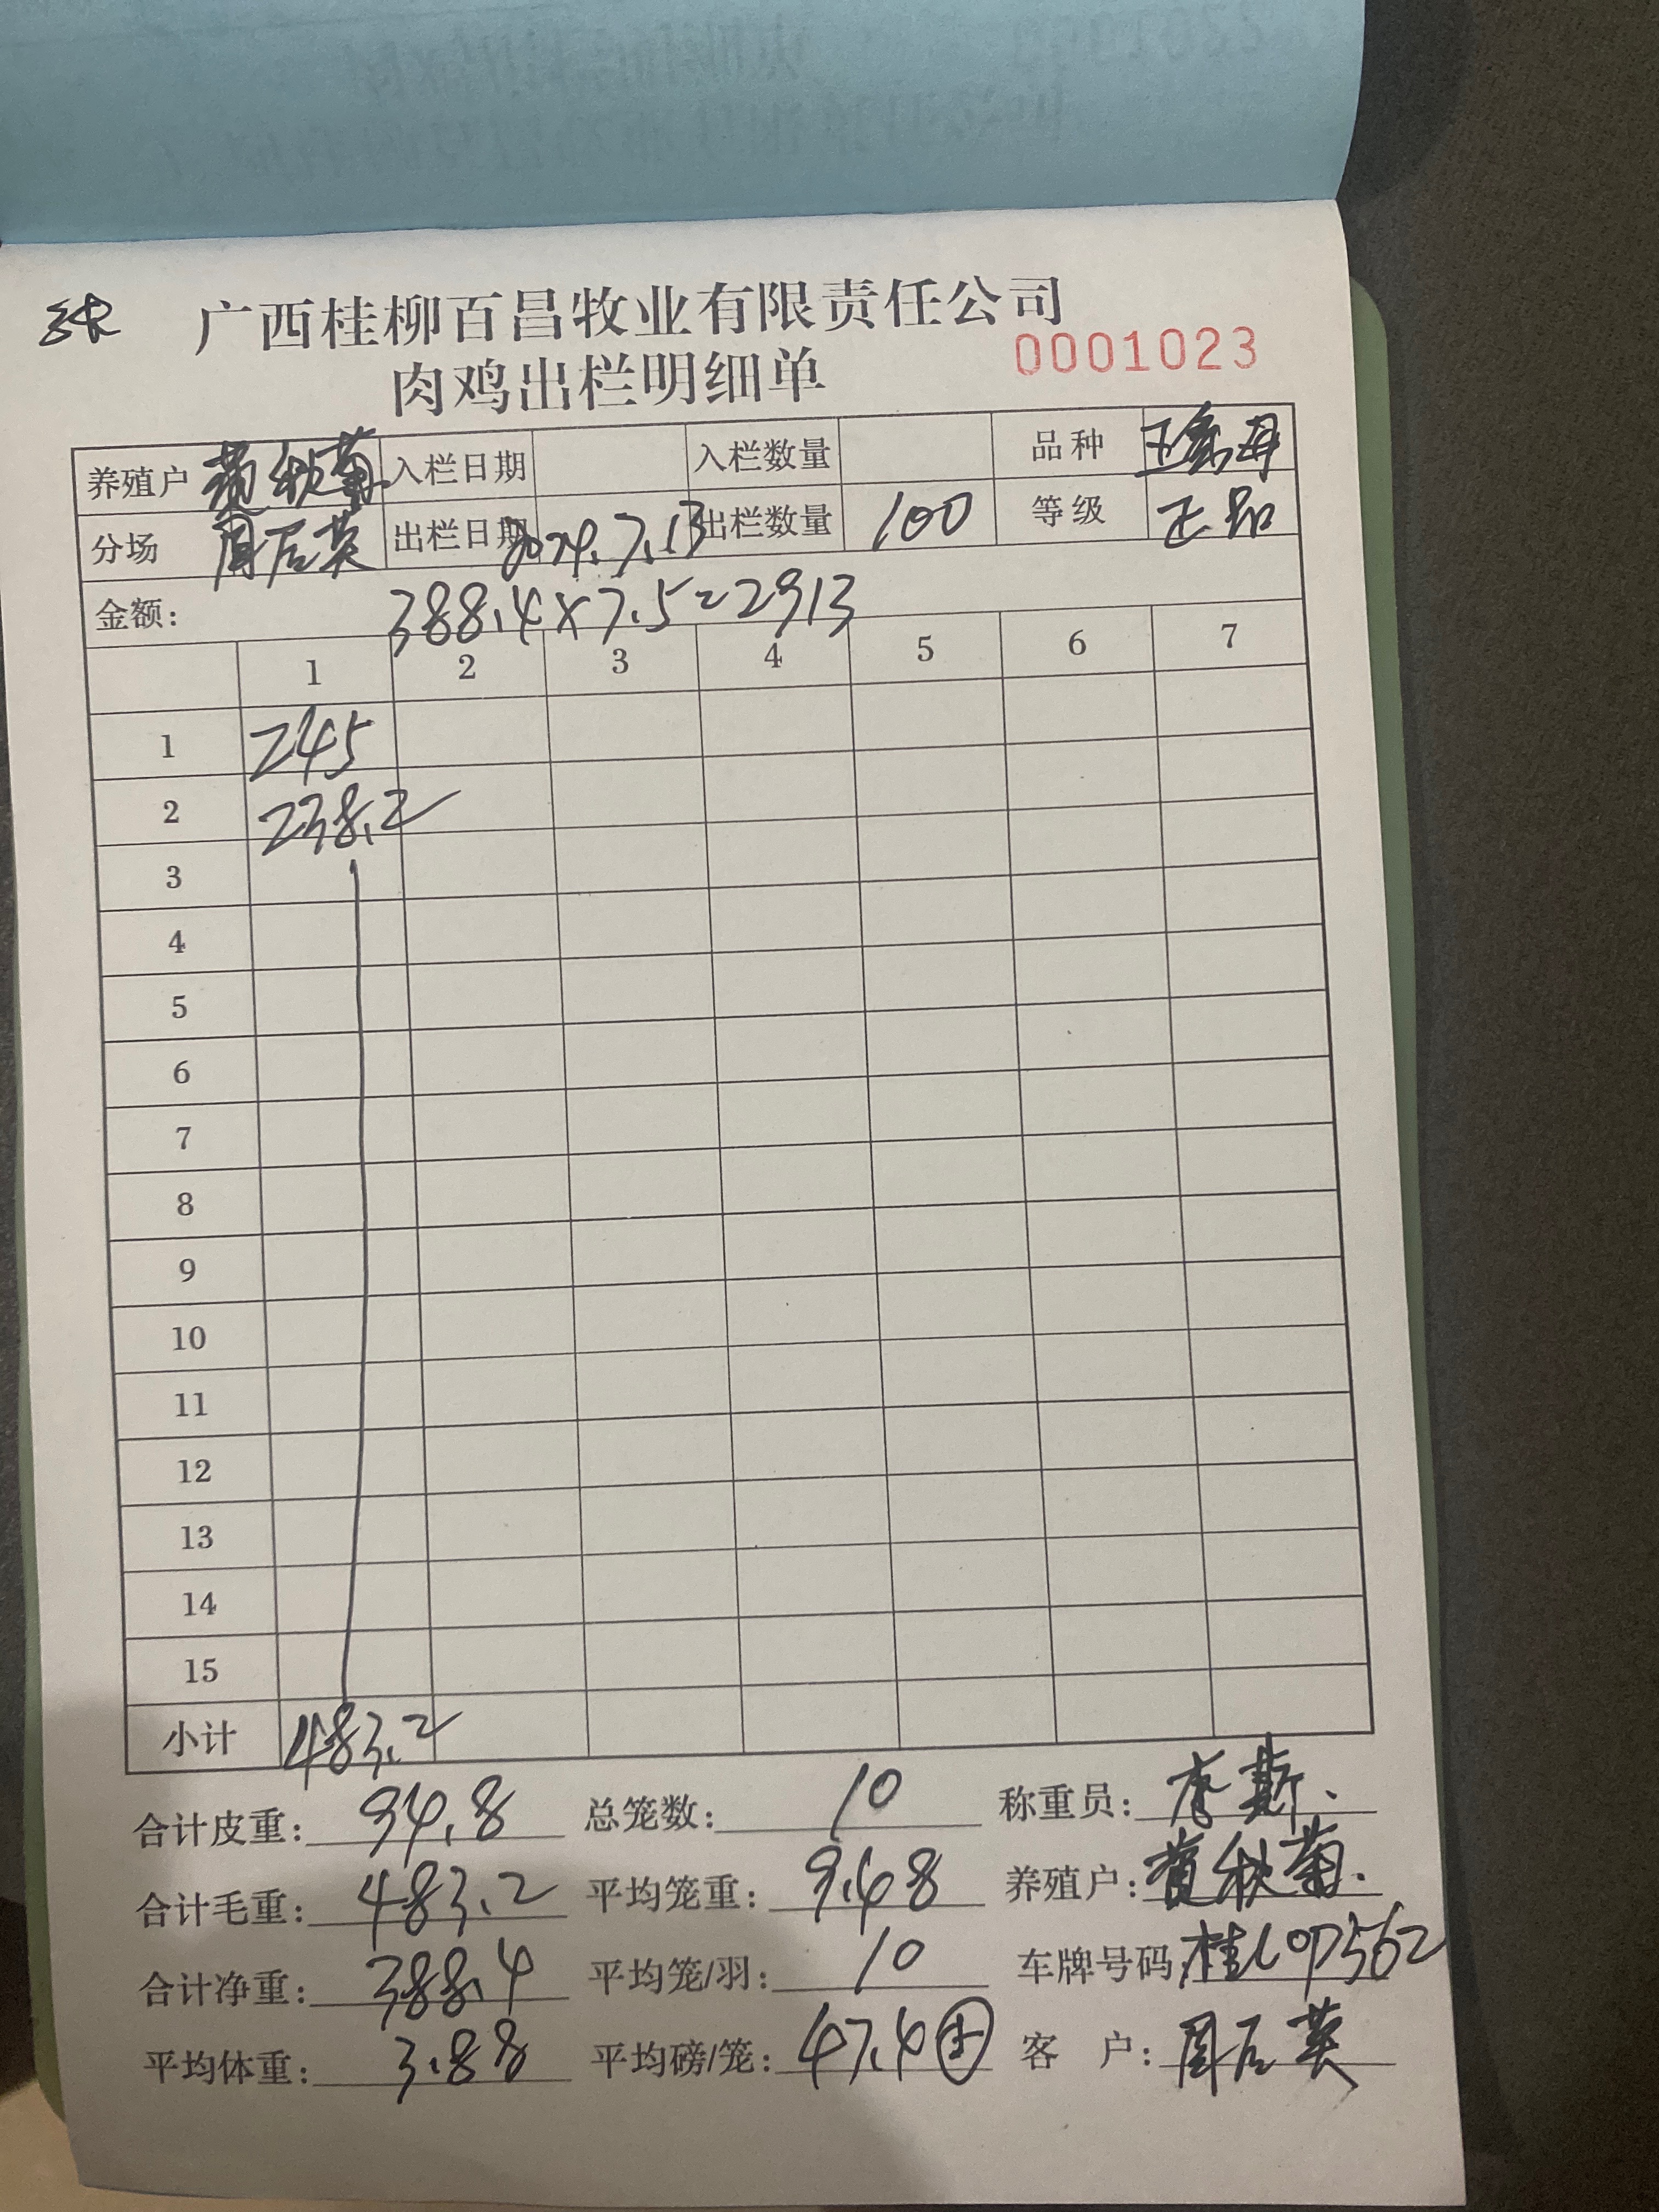 广西桂柳百昌牧业有限责任公司
肉鸡出栏明细单 0001023
养殖户 秋菊 入栏日期 入栏数量 品种
分场 周后英 出栏日期 2024.7.13 出栏数量 100 等级 正品
金额: 388.4×7.5=2913
1 2 3 4 5 6 7
1 245
2 238.2
3
4
5
6
7
8
9
10
11
12
13
14
15
小计 483.2
合计皮重: 94.8 总笼数: 10 称重员: 李斯
合计毛重: 483.2 平均笼重: 9.48 养殖户: 黄秋菊.
合计净重: 388.4 平均笼/羽: 10 车牌号码
平均体重: 3.88 平均磅/笼: 47.4 客 户: 周后英